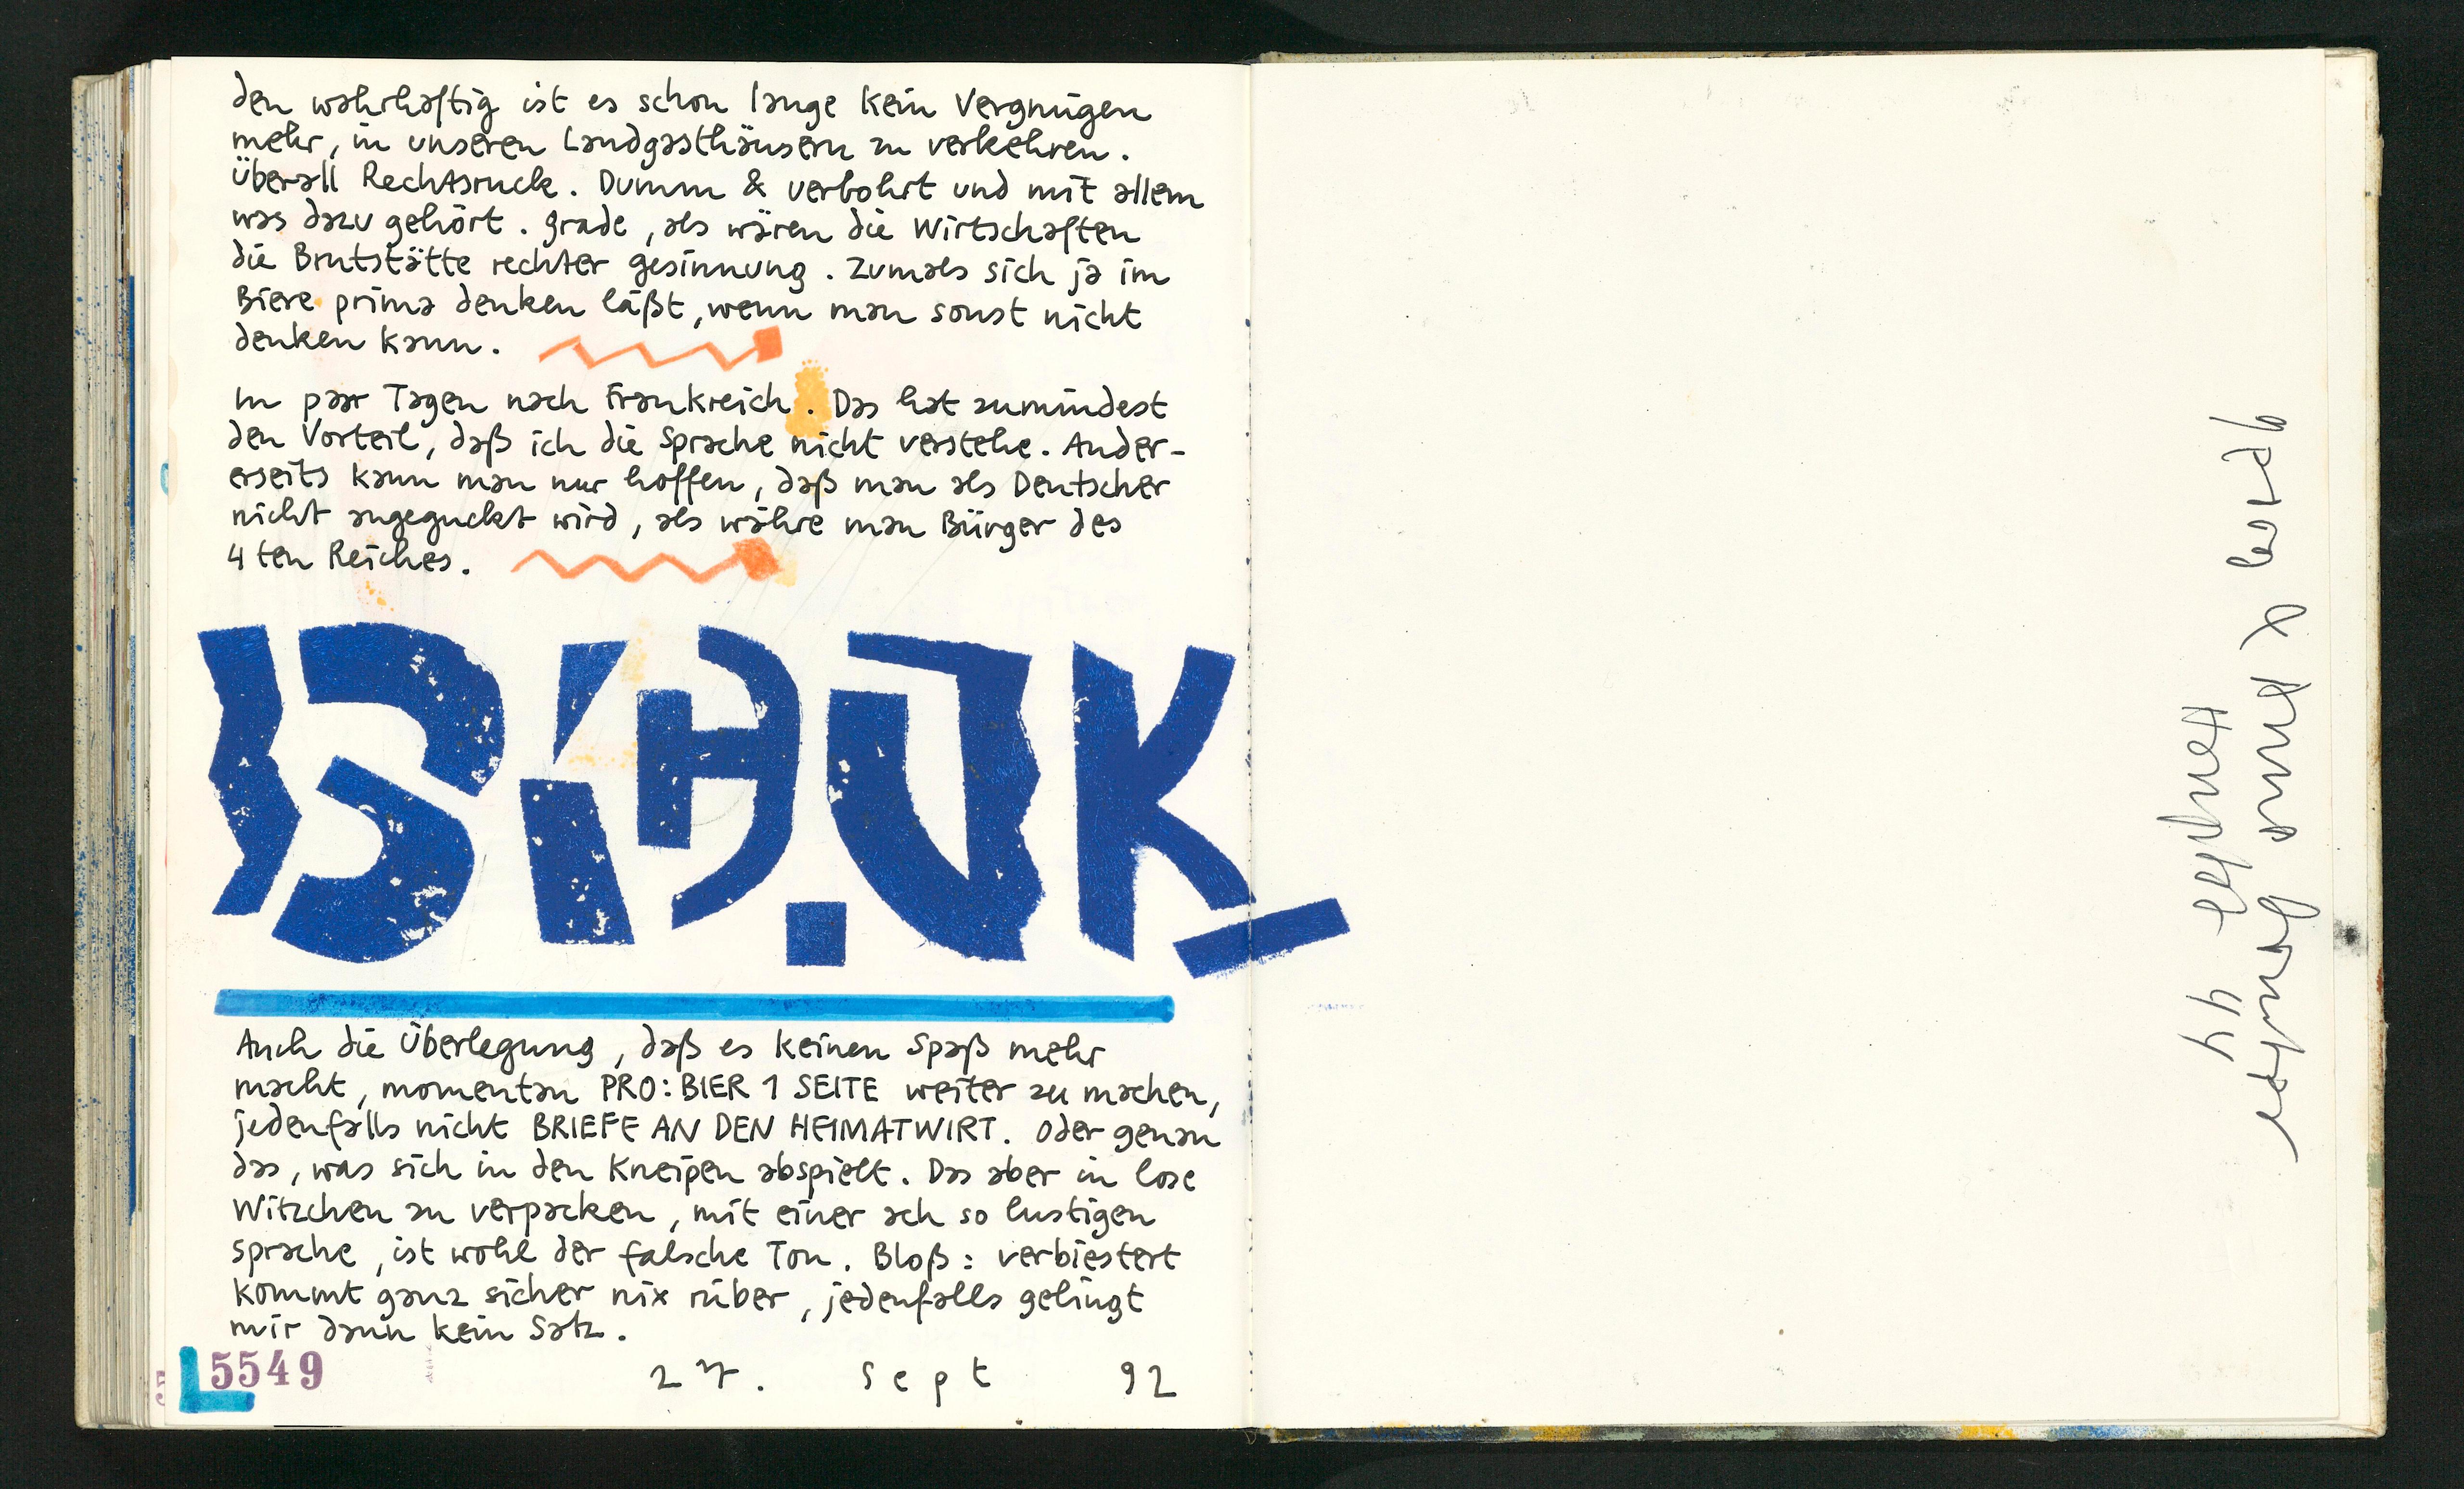 den wahrhaftig ist es schon lange kein Vergnügen
mehr, in unseren Landgasthäusern zu verkehren.
Überall Rechtsruck. Dumm & verbohrt und mit allem
was dazu gehört. grade, als wären die Wirtschaften
die Brutstätte rechter gesinnung. Zumals sich ja im
Biere prima denken läßt, wenn man sonst nicht
denken kann.
In paar Tagen nach Frankreich. Das hat zumindest
den Vorteil, daß ich die Sprache nicht verstehe. Ander-
erseits kann man nur hoffen, daß man als Deutscher
nicht angeguckt wird, als währe man Bürger des
4ten Reiches.
Auch die Überlegung, daß es keinen Spaß mehr
macht, momentan PRO:BIER 1 SEITE weiter zu machen,
jedenfalls nicht BRIEFE AN DEN HEIMATWIRT. Oder genau
das, was sich in den Kneipen abspielt. Das aber in lose
Witzchen zu verpacken, mit einer ach so lustigen
sprache, ist wohl der falsche Ton. Bloß: verbiestert
kommt ganz sicher nix rüber, jedenfalls gelingt
mir dann kein Satz.
5549
27. Sept 92